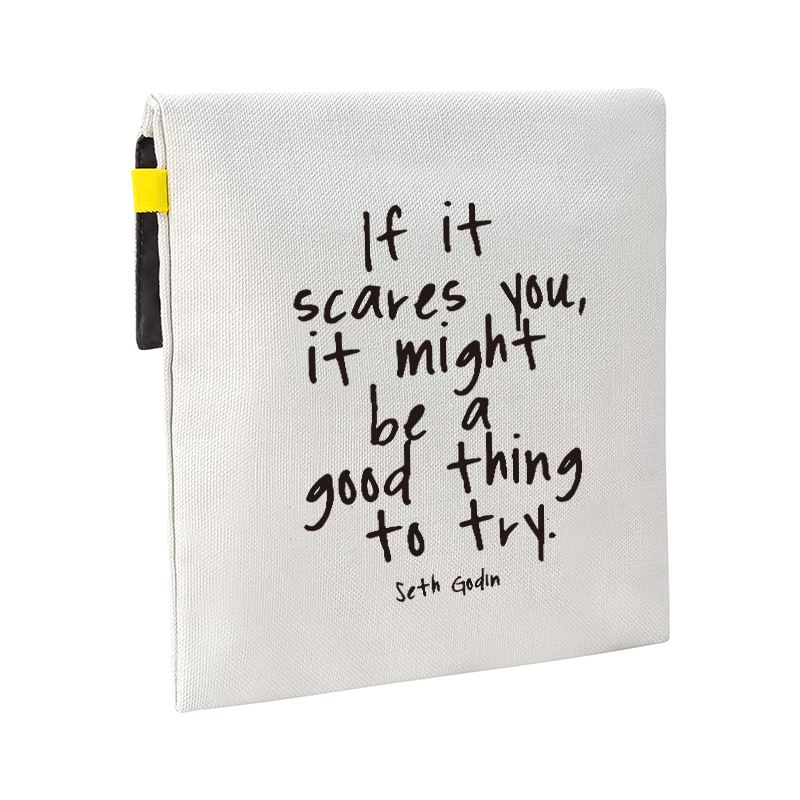 If it
scares you,
it might
be a
good thing
to try.
Seth Godin